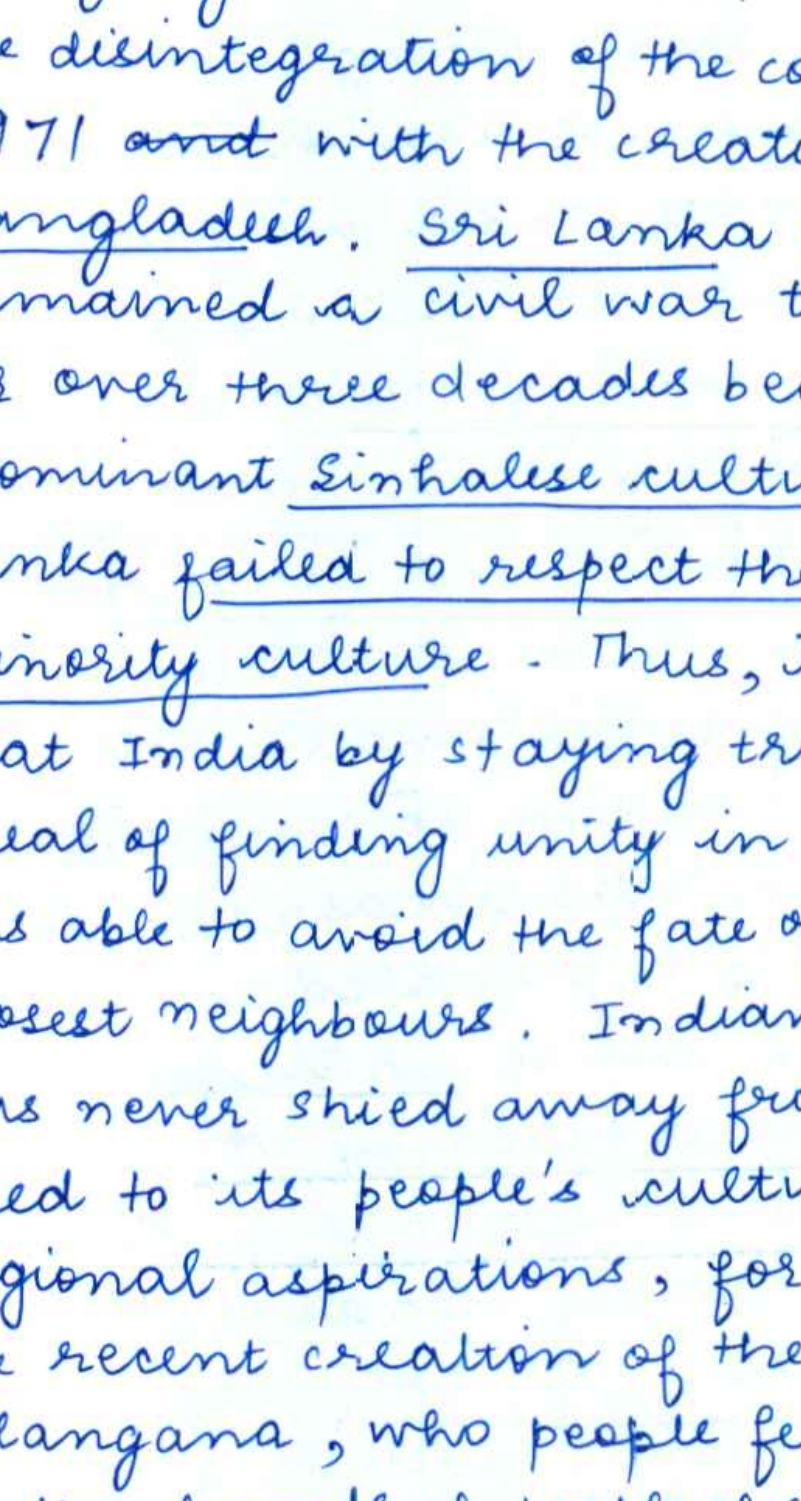 e disintegration of the co
971 and with the creati
angladesh. Sri Lanka
mained a civil war t
r over three decades bec
ominant Sinhalese cultu
nka failed to respect the
inority culture. Thus, i
at India by staying tr
eal of finding unity in
s able to avoid the fate o
osest neighbours. Indian
as never shied away fro
ed to its people's cultu
gional aspirations, for
e recent creation of the
langana, who people fe